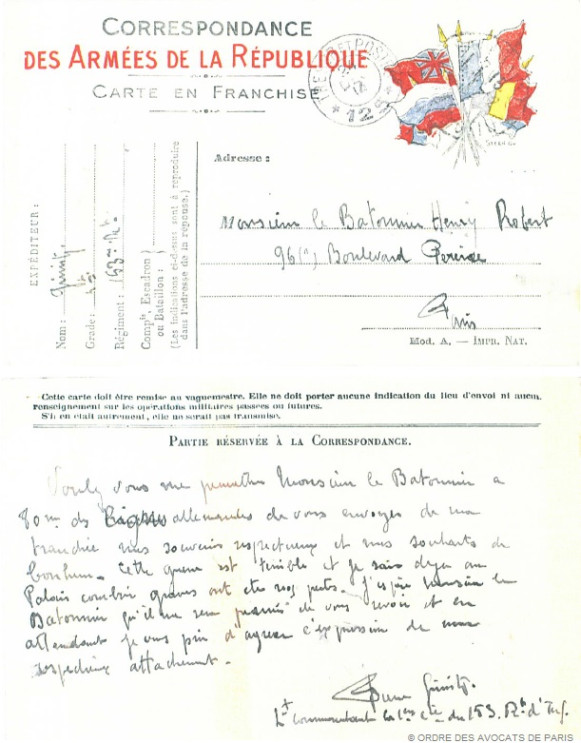 CORRESPONDANCE
DES ARMÉES DE LA RÉPUBLIQUE
CARTE EN FRANCHISE
EXPÉDITEUR :
Nom :
Grade :
Régiment : 153me
Compie, Escadron
ou Bataillon :
(Les indications ci-dessus sont à reproduire
dans l'adresse de la réponse.)
Adresse :
Monsieur le Batonnier Henry Robert
96 Boulevard Pereire
Paris
Mod. A. — IMPR. NAT.
Cette carte doit être remise au vaguemestre. Elle ne doit porter aucune indication du lieu d'envoi ni aucun
renseignement sur les opérations militaires passées ou futures.
S'il en était autrement, elle ne serait pas transmise.
PARTIE RÉSERVÉE À LA CORRESPONDANCE.
vous me permettre Monsieur le Batonnier a
80 m. des lignes allemandes de vous envoyer de ma
tranchée mes souvenirs respectueux et mes souhaits de
bonheur. Cette guerre est terrible et je sais deja au
Palais combien graves ont ete nos pertes. J'espère Monsieur le
Batonnier qu'il me sera permis de vous revoir et en
attendant je vous prie d'agreer l'expression de mon
respectueux attachement.
Lt commandant la 1ere Cie du 153 Rt d'Inf.
© ORDRE DES AVOCATS DE PARIS